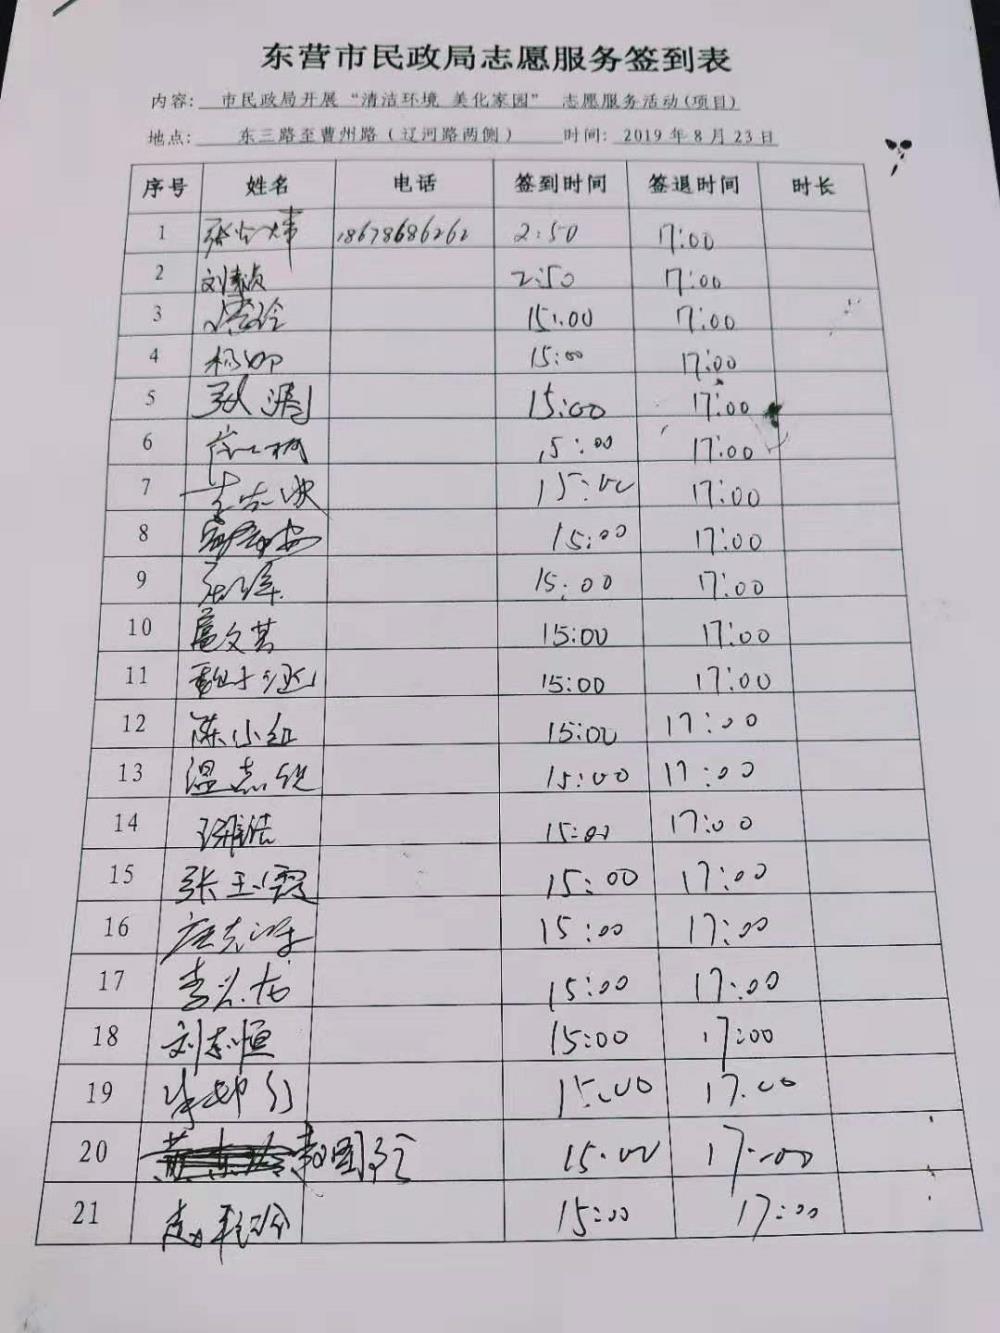 东营市民政局志愿服务签到表
内容: 市民政局开展“清洁环境 美化家园” 志愿服务活动(项目)
地点: 东三路至曹州路(辽河路两侧) 时间: 2019年8月23日
序号 姓名 电话 签到时间 签退时间 时长
1 18678686262 2:50 17:00
2 刘素贞 2:50 17:00
3 15:00 17:00
4 15:00 17:00
5 15:00 17:00
6 15:00 17:00
7 15:00 17:00
8 15:00 17:00
9 15:00 17:00
10 扈文其 15:00 17:00
11 15:00 17:00
12 陈小红 15:00 17:00
13 温志锐 15:00 17:00
14 15:00 17:00
15 张玉霞 15:00 17:00
16 15:00 17:00
17 15:00 17:00
18 刘志恒 15:00 17:00
19 15:00 17:00
20 15:00 17:00
21 15:00 17:00